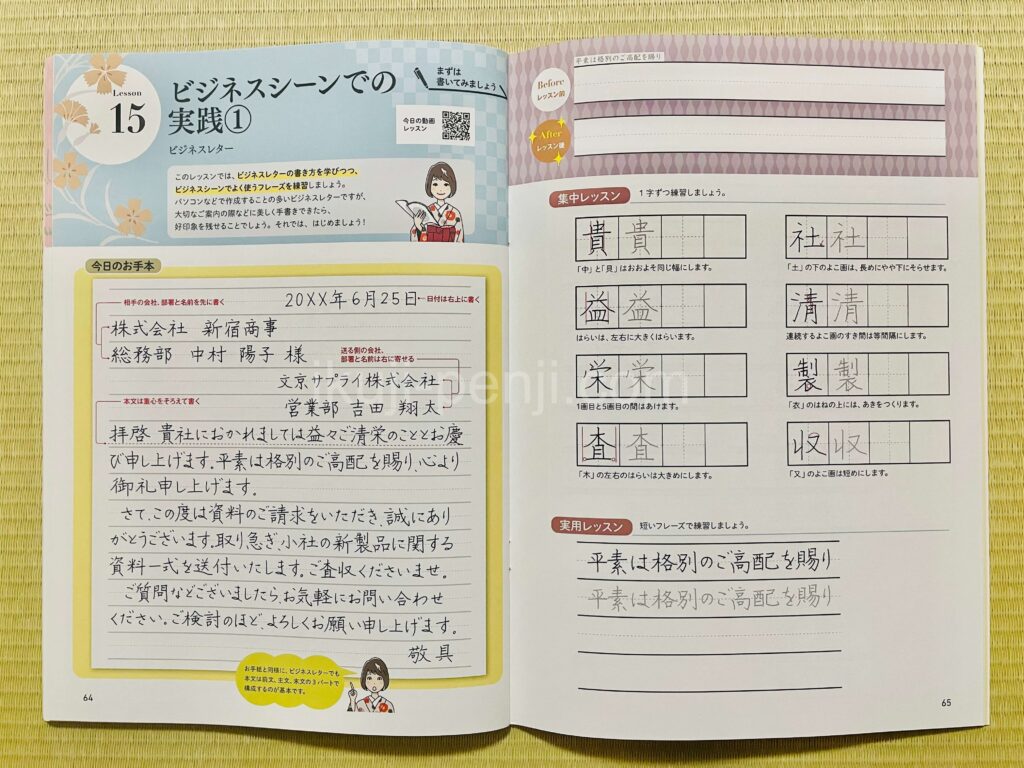 Lesson
15
ビジネスシーンでの
実践①
ビジネスレター
まずは
書いてみましょう
今日の動画
レッスン
このレッスンでは、ビジネスレターの書き方を学びつつ、
ビジネスシーンでよく使うフレーズを練習しましょう。
パソコンなどで作成することの多いビジネスレターですが、
大切なご案内の際などに美しく手書きできたら、
好印象を残せることでしょう。それでは、はじめましょう！
今日のお手本
相手の会社、部署と名前を先に書く
20XX年6月25日
日付は右上に書く
株式会社 新宿商事
総務部 中村 陽子 様
送る側の会社、
部署と名前は右に寄せる
文京サプライ株式会社
営業部 吉田 翔太
本文は重心をそろえて書く
拝啓 貴社におかれましては益々ご清栄のこととお慶
び申し上げます。平素は格別のご高配を賜り、心より
御礼申し上げます。
さて、この度は資料のご請求をいただき、誠にあり
がとうございます。取り急ぎ、小社の新製品に関する
資料一式を送付いたします。ご査収くださいませ。
ご質問などございましたら、お気軽にお問い合わせ
ください。ご検討のほど、よろしくお願い申し上げます。
敬具
お手紙と同様に、ビジネスレターでも
本文は前文、主文、末文の3パートで
構成するのが基本です。
64
平素は格別のご高配を賜り
Before
レッスン前
After
レッスン後
集中レッスン
1字ずつ練習しましょう。
貴 貴
「中」と「貝」はおおよそ同じ幅にします。
社 社
「土」の下のよこ画は、長めにやや下にそらせます。
益 益
はらいは、左右に大きくはらいます。
清 清
連続するよこ画のすき間は等間隔にします。
栄 栄
1画目と5画目の間はあけます。
製 製
「衣」のはねの上には、あきをつくります。
査 査
「木」の左右のはらいは大きめにします。
収 収
「又」のよこ画は短めにします。
実用レッスン
短いフレーズで練習しましょう。
平素は格別のご高配を賜り
平素は格別のご高配を賜り
65
ikuji-penji.com